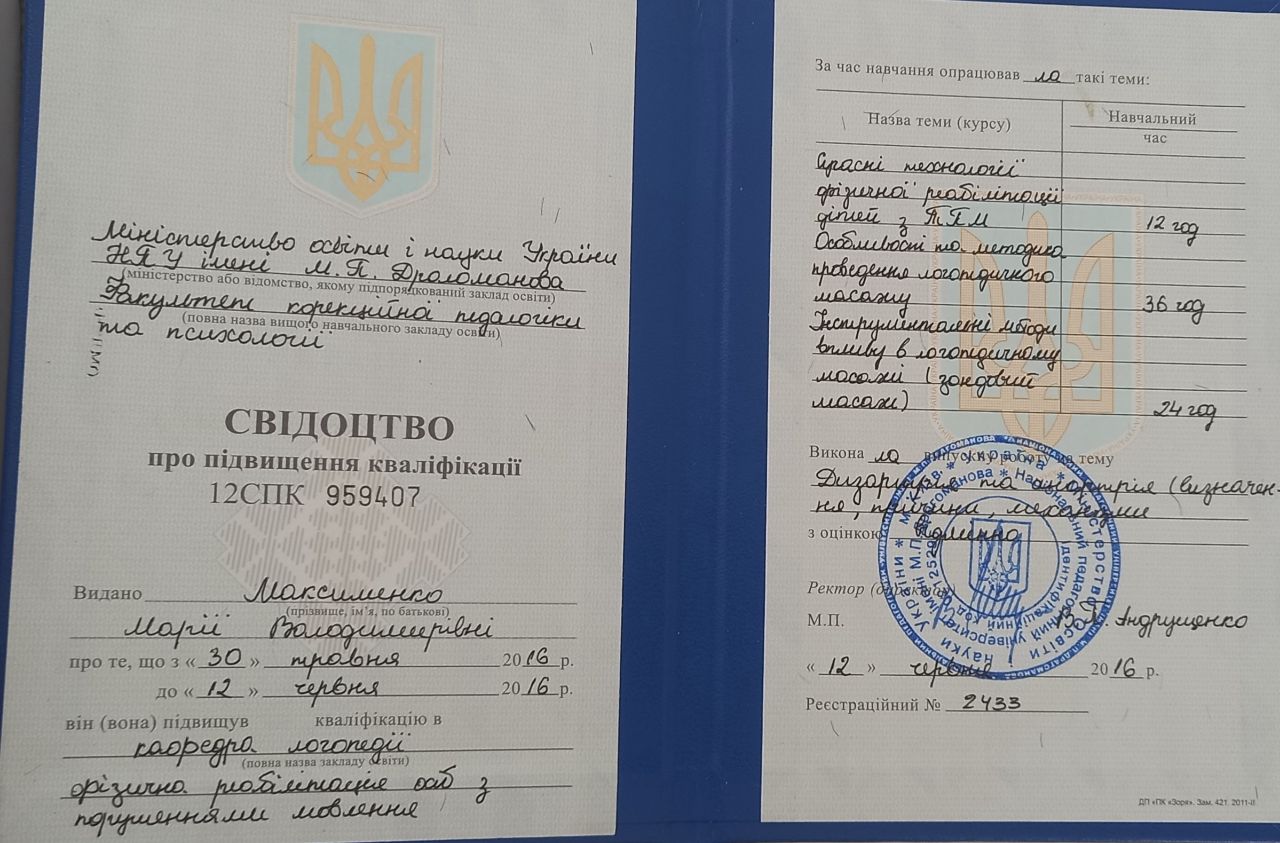 Міністерство освіти і науки України
НПУ імені М.П. Драгоманова
(міністерство або відомство, якому підпорядкований заклад освіти)
Факультет корекційної педагогіки
(повна назва вищого навчального закладу освіти)
та психології
СВІДОЦТВО
про підвищення кваліфікації
12СПК 959407
Видано Максименко
(прізвище, ім'я, по батькові)
Марії Володимирівні
про те, що з « 30 » травня 2016 р.
до « 12 » червня 2016 р.
він (вона) підвищув кваліфікацію в
кафедра логопедії
(повна назва закладу освіти)
фізична реабілітація осіб з
порушеннями мовлення
За час навчання опрацював ла такі теми:
Назва теми (курсу) Навчальний
час
Сучасні технології
фізичної реабілітації
дітей з ТПМ 12 год
Особливості та методика
проведення логопедичного
масажу 36 год
Інструментальні методи
впливу в логопедичному
масажі (зондовий
масаж) 24 год
Викона ла випускну роботу на тему
Дизартрія та анартрія (визначен-
ня, причини, механізми
з оцінкою відмінно
Ректор (директор)
М.П. В.П. Андрущенко
« 12 » червня 2016 р.
Реєстраційний № 2433
ДП «ПК «Зоря». Зам. 421. 2011-ІІ